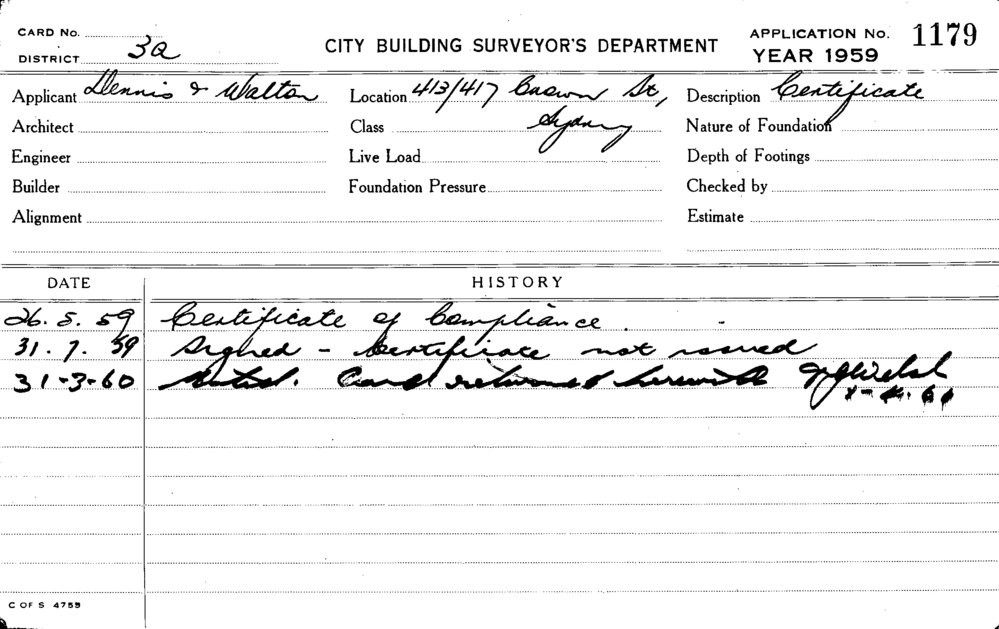 CARD No.
DISTRICT 3a
CITY BUILDING SURVEYOR'S DEPARTMENT
APPLICATION No. 1179
YEAR 1959
Applicant Dennis & Walton Location 413/417 Crown St, Description Certificate
Architect Class Sydney Nature of Foundation
Engineer Live Load Depth of Footings
Builder Foundation Pressure Checked by
Alignment Estimate
DATE HISTORY
26. 5. 59 Certificate of Compliance.
31. 7. 59 Signed - Certificate not issued
31-3-60 Noted. Card returned herewith
C OF S 4759